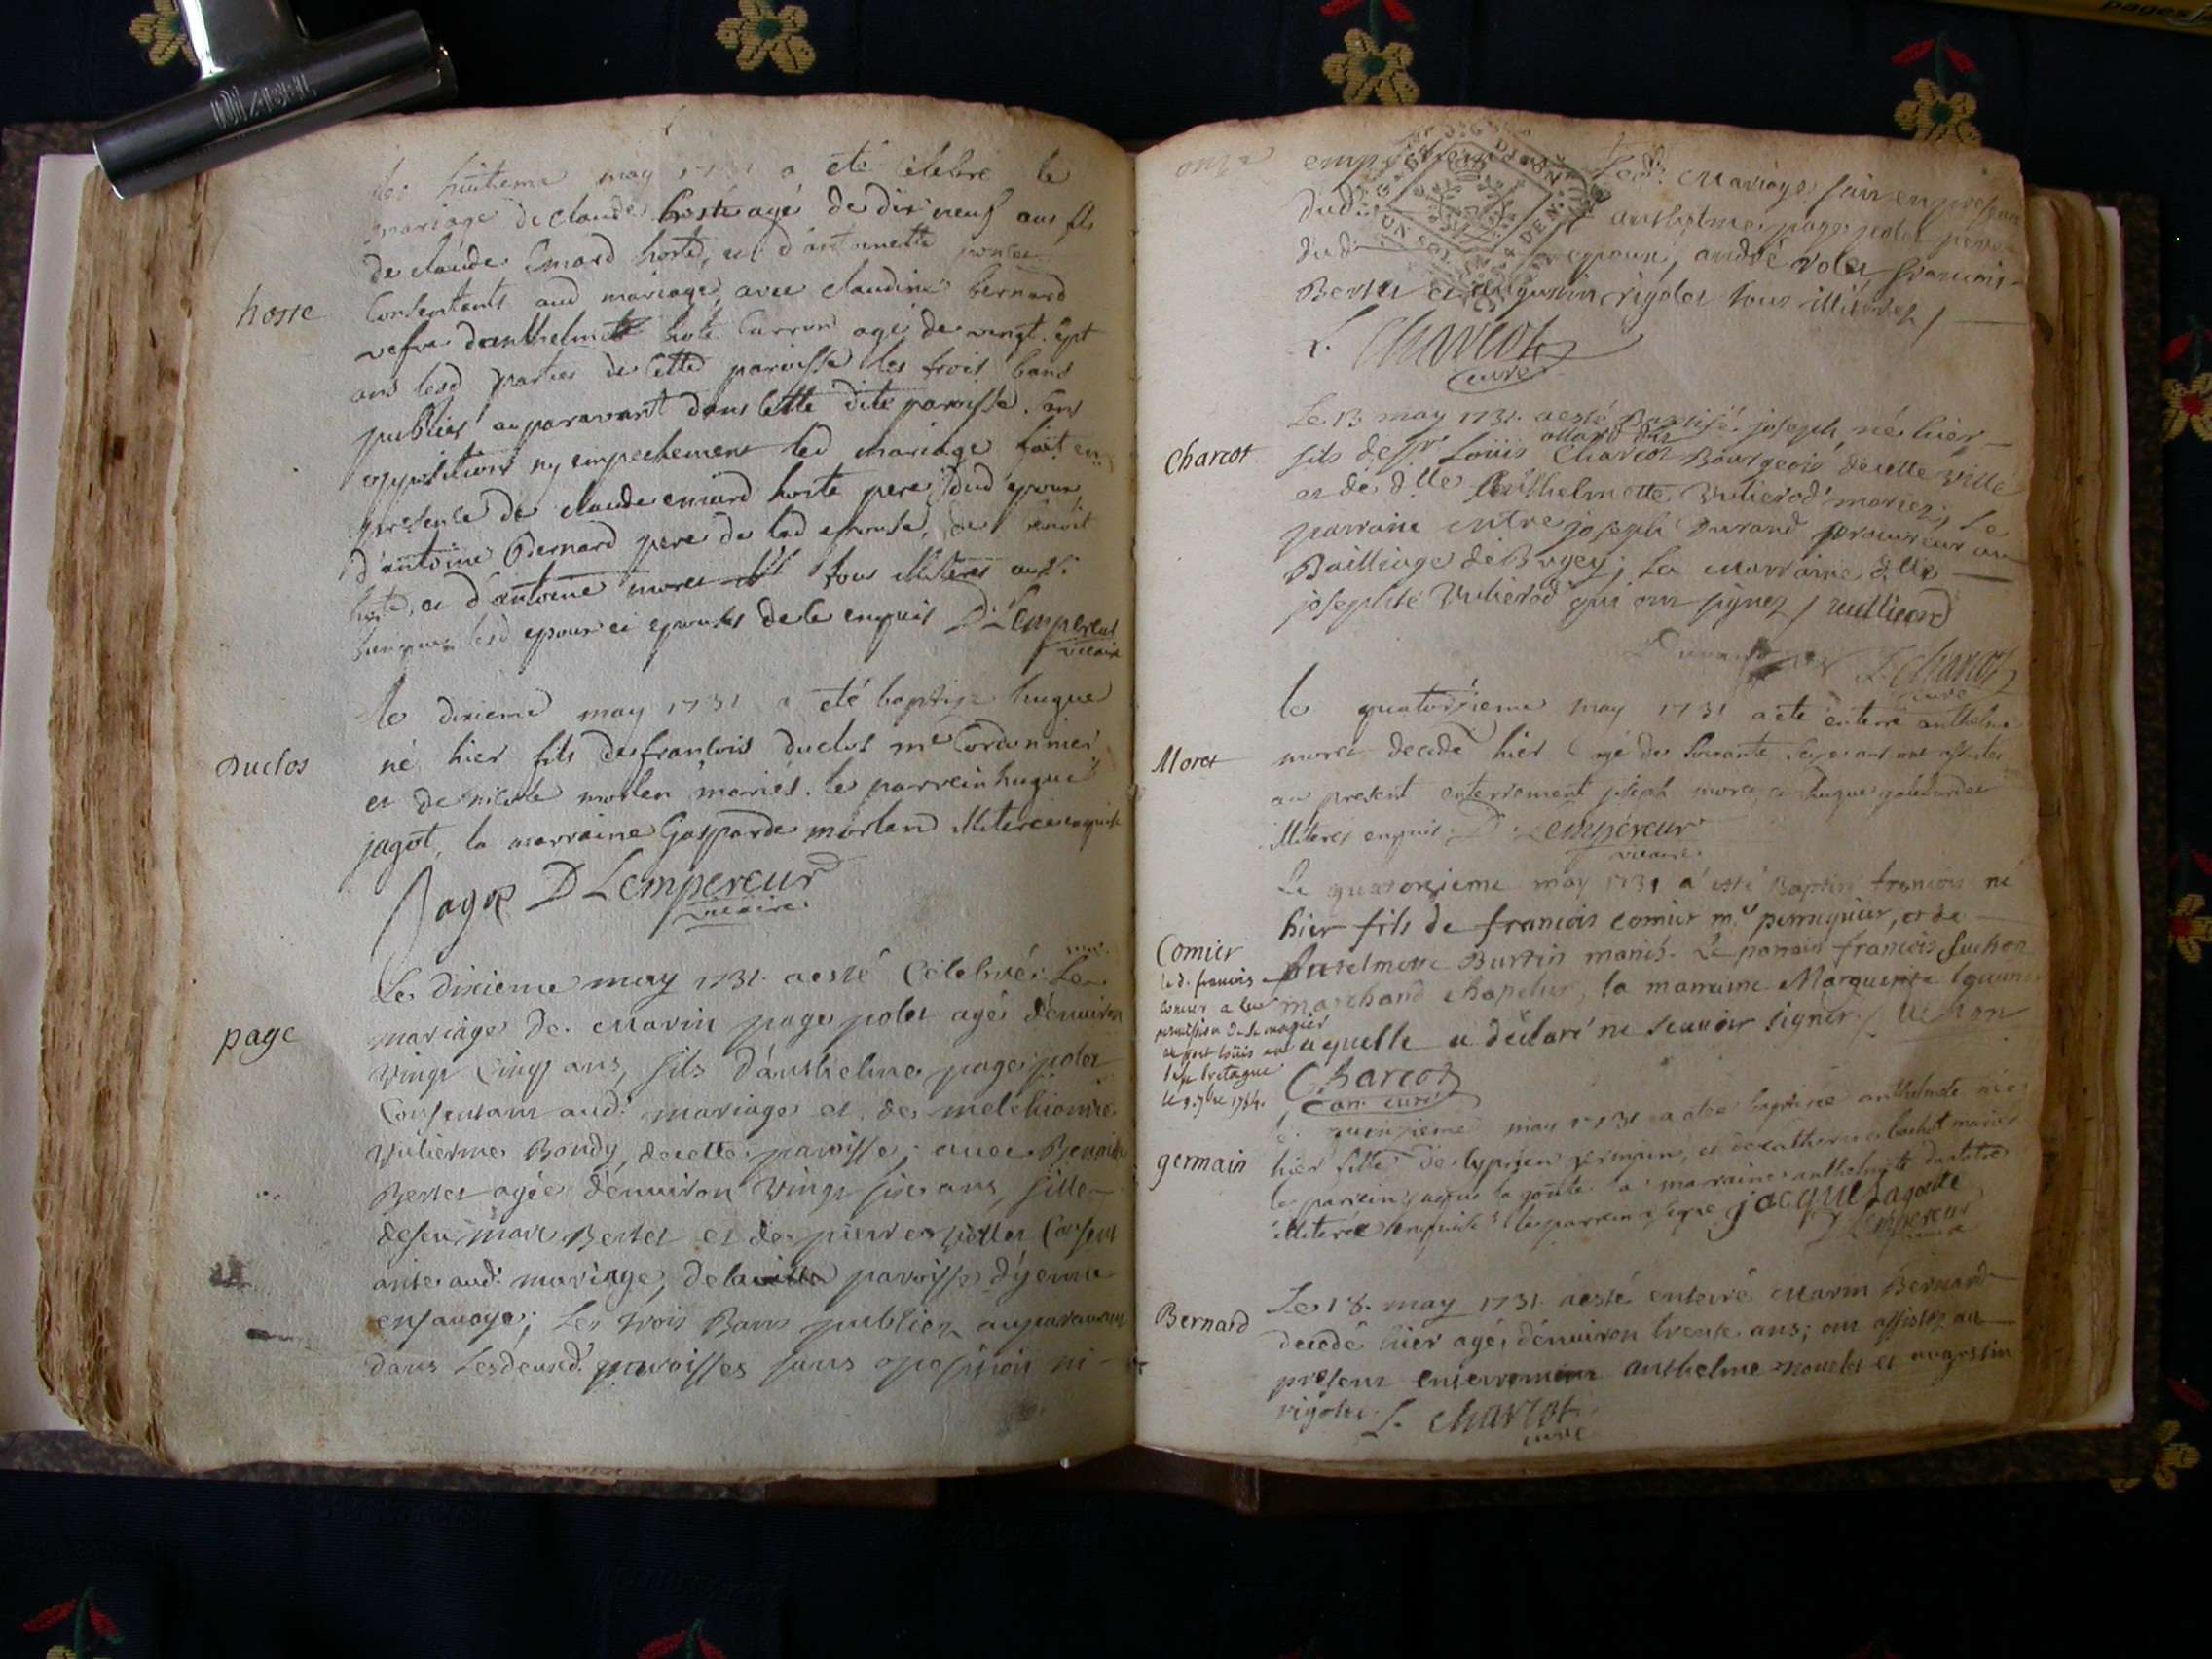 le huitieme may 1731 a eté celebre le
mariage de claude hoste agé de dix neuf ans fils
de claude Emard hoste, et d'antoinette
hoste
Consentants aud mariage, avec claudine bernard
vefve danthelme hoste Carron agé de vingt sept
ans lesd parties de cette paroisse les trois bans
publiés auparavant dans cette dite paroisse sans
opposition ny empechement led mariage fait en
presence de claude emard hoste pere dud epoux
d'antoine Bernard pere de lad epouse, de benoit
hoste, et d'antoine moret tous illiteres aussi
bien que lesd epoux et epouse de ce enquis D Lempereur
vicaire
le dixieme may 1731 a été baptisé hugue
Duclos
né hier fils de françois duclos me Cordonnier
et de nicole morlen mariés. le parrein hugue
jagot, la marraine Gasparde morland illiterée enquise
Jagot D Lempereur
vicaire
Le dixieme may 1731. a esté Célébré Le
page
mariage de Marin page polet agé d'enuiron
vingt Cinq ans, fils d'anthelme page polet
Consentant aud. mariage et de melchionne
Vulierme Bondy, de cette paroisse; auec Benoite
Bertet agée d'enuiron vingt six ans, fille
de feu Marc Bertet et de pierre Consent
ante aud. mariage, de la paroisse d'yenne
en sauoye; Les trois Bans publiez auparauant
dans Lesdeuxd. paroisses sans oposition ni
emp Led. Mariage fait en presence
dud. anthelme page polet pere
dud. epoux, andré rolet françois
Bertet et augustin rigolet tous illiterez /
L. Charcot
curé
Le 13 may 1731. a esté Baptisé joseph, né hier
allard dit
Charcot
fils de sr Loüis Charcot Bourgeois de cette ville
et de dlle Anthelmette Vullierod mariez; Le
parrain mtre joseph Durand procureur au
Bailliage de Bugey; La Marraine dlle
josephte Vulliérod qui ont signez / vullierod
Durand L. Charcot
curé
le quatorzieme may 1731 a ete enterré anthelme
Moret
moret decedé hier agé de soixante seize ans ont assistés
au present enterrement joseph moret et hugue
illiteres enquis. D Lempereur
vicaire
Le quatorzieme may 1731 a esté Baptisé francois né
hier fils de francois comier me perruquier, et de
Comier
Anthelmette Burtin mariés. Le parrain francois Suchon
marchand chapelier, la marraine Marguerite
laquelle a déclaré ne scauoir signer. / Suchon
Le d. francois
comier a eu
permission de se marier
au port Loüis en
basse bretagne
le 9. 7bre 1754.
Charcot
can. curé
le quinzieme may 1731 a etee baptisee anthelmete née
germain
hier fille de cyprien germain, et de catherine bachet mariés
le parrein jacque la goutte la marraine anthelmete
illiterée enquise le parrein signé jacque Lagoutte
D Lempereur
vicaire
Le 18. may 1731. a esté enterré Marin Bernard
Bernard
decedé hier agé d'enuiron trente ans; ont assistez au
present enterrement anthelme moulet et augustin
rigolet. L. Charcot
curé